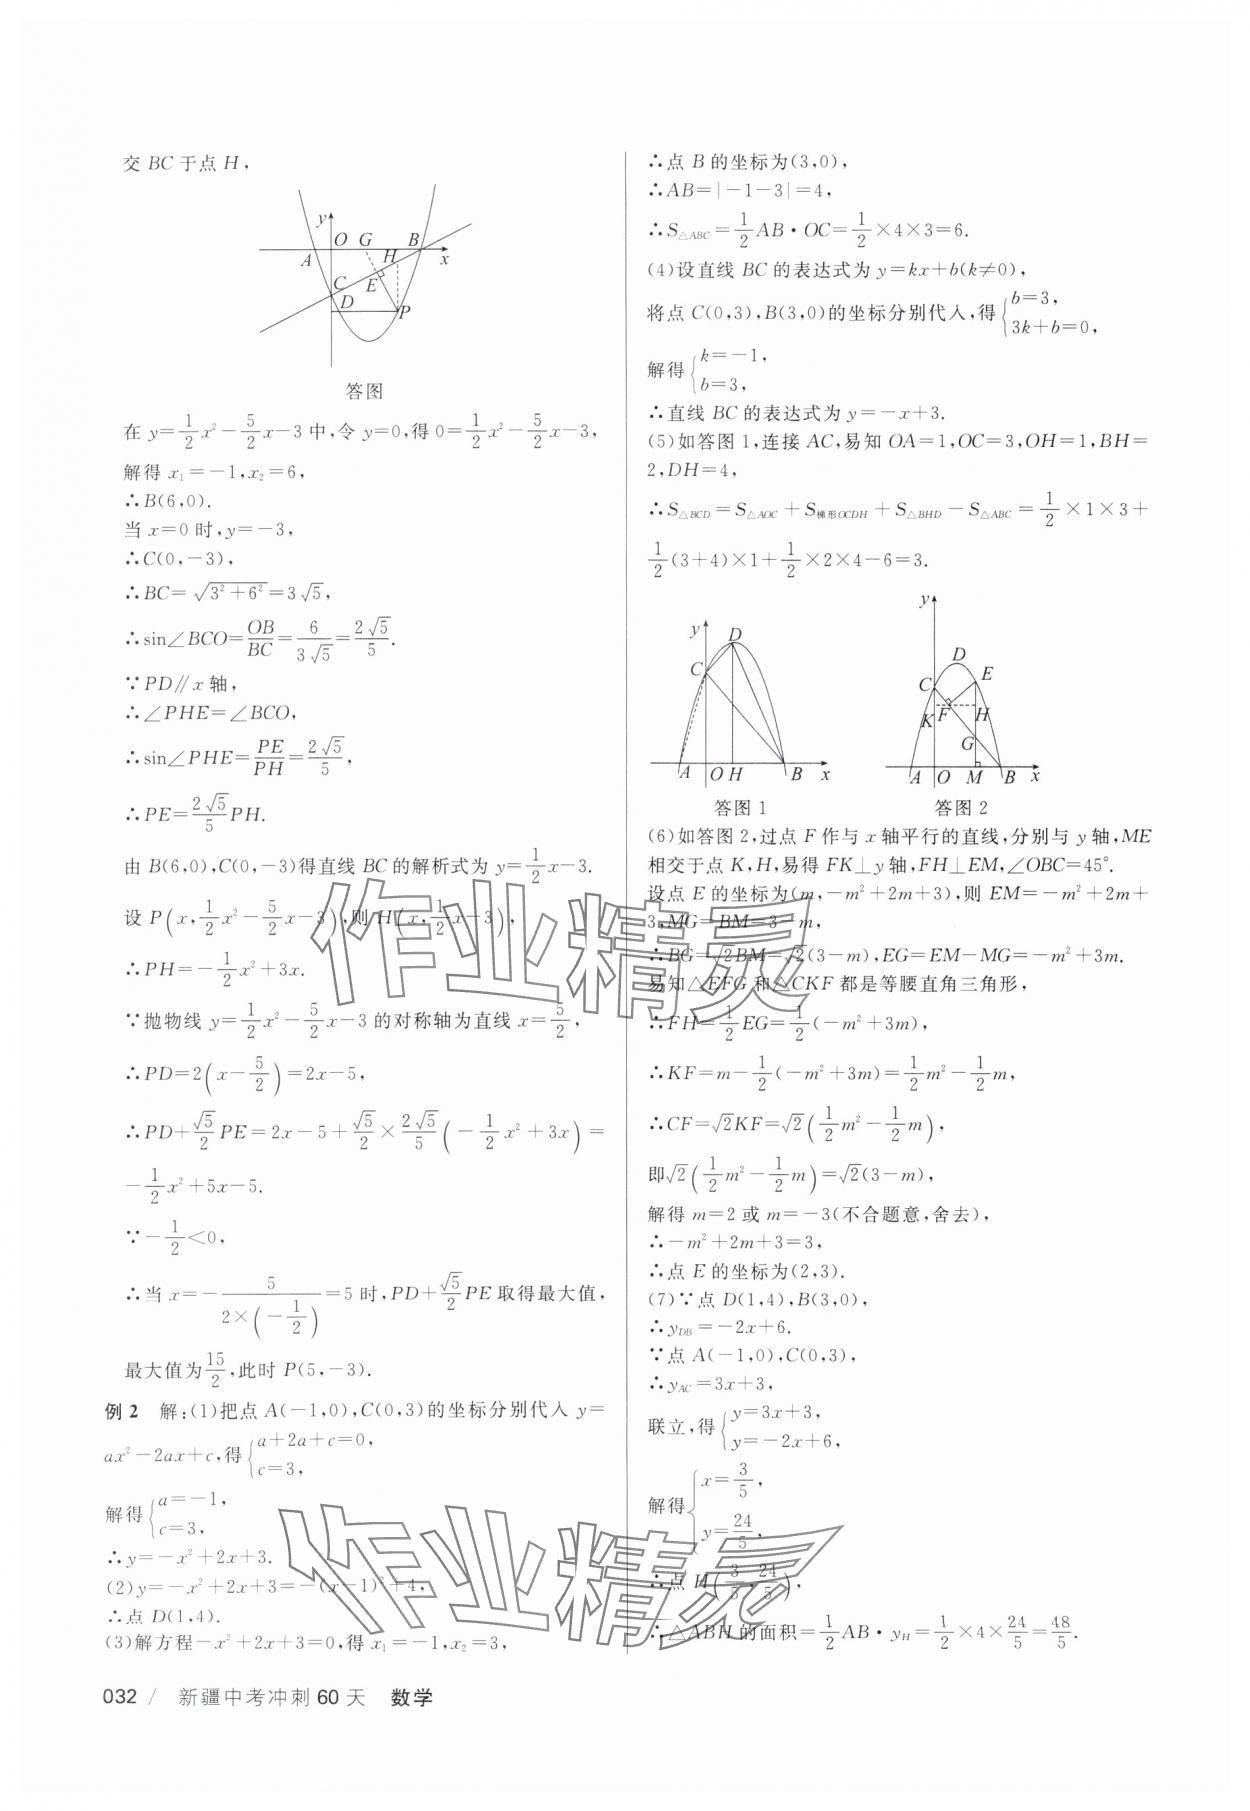 交 BC 于点 H,
y
O G B
A H x
C E
D P
答图
在 y=1/2x²-5/2x-3 中,令 y=0,得 0=1/2x²-5/2x-3,
解得 x₁=-1,x₂=6,
∴B(6,0).
当 x=0 时,y=-3,
∴C(0,-3),
∴BC=√(3²+6²)=3√5,
∴sin∠BCO=OB/BC=6/(3√5)=2√5/5.
∵PD∥x 轴,
∴∠PHE=∠BCO,
∴sin∠PHE=PE/PH=2√5/5,
∴PE=2√5/5 PH.
由 B(6,0),C(0,-3)得直线 BC 的解析式为 y=1/2x-3.
设 P(x,1/2x²-5/2x-3),则 H(x,1/2x-3),
∴PH=-1/2x²+3x.
∵抛物线 y=1/2x²-5/2x-3 的对称轴为直线 x=5/2,
∴PD=2(x-5/2)=2x-5,
∴PD+√5/2 PE=2x-5+√5/2×2√5/5(-1/2x²+3x)=
-1/2x²+5x-5.
∵-1/2<0,
∴当 x=-5/(2×(-1/2))=5 时,PD+√5/2 PE 取得最大值,
最大值为15/2,此时 P(5,-3).
例 2 解:(1)把点 A(-1,0),C(0,3)的坐标分别代入 y=
ax²-2ax+c,得{a+2a+c=0, c=3,
解得{a=-1, c=3,
∴y=-x²+2x+3.
(2)y=-x²+2x+3=-(x-1)²+4,
∴点 D(1,4).
(3)解方程-x²+2x+3=0,得 x₁=-1,x₂=3,
∴点 B 的坐标为(3,0),
∴AB=|-1-3|=4,
∴S△ABC=1/2AB·OC=1/2×4×3=6.
(4)设直线 BC 的表达式为 y=kx+b(k≠0),
将点 C(0,3),B(3,0)的坐标分别代入,得{b=3, 3k+b=0,
解得{k=-1, b=3,
∴直线 BC 的表达式为 y=-x+3.
(5)如答图 1,连接 AC,易知 OA=1,OC=3,OH=1,BH=
2,DH=4,
∴S△BCD=S△AOC+S梯形OCDH+S△BHD-S△ABC=1/2×1×3+
1/2(3+4)×1+1/2×2×4-6=3.
y D C A O H B x
答图 1
y D C E K F H G A O M B x
答图 2
(6)如答图 2,过点 F 作与 x 轴平行的直线,分别与 y 轴,ME
相交于点 K,H,易得 FK⊥y 轴,FH⊥EM,∠OBC=45°.
设点 E 的坐标为(m,-m²+2m+3),则 EM=-m²+2m+
3,MG=BM=3-m,
∴BG=√2BM=√2(3-m),EG=EM-MG=-m²+3m.
易知△EFG 和△CKF 都是等腰直角三角形,
∴FH=1/2EG=1/2(-m²+3m),
∴KF=m-1/2(-m²+3m)=1/2m²-1/2m,
∴CF=√2KF=√2(1/2m²-1/2m),
即√2(1/2m²-1/2m)=√2(3-m),
解得 m=2 或 m=-3(不合题意,舍去),
∴-m²+2m+3=3,
∴点 E 的坐标为(2,3).
(7)∵点 D(1,4),B(3,0),
∴y_DB=-2x+6.
∵点 A(-1,0),C(0,3),
∴y_AC=3x+3,
联立,得{y=3x+3, y=-2x+6,
解得{x=3/5, y=24/5,
∴点 H(3/5,24/5),
∴△ABH 的面积=1/2AB·y_H=1/2×4×24/5=48/5.
作业精灵
作业精灵
032 / 新疆中考冲刺 60 天 数学